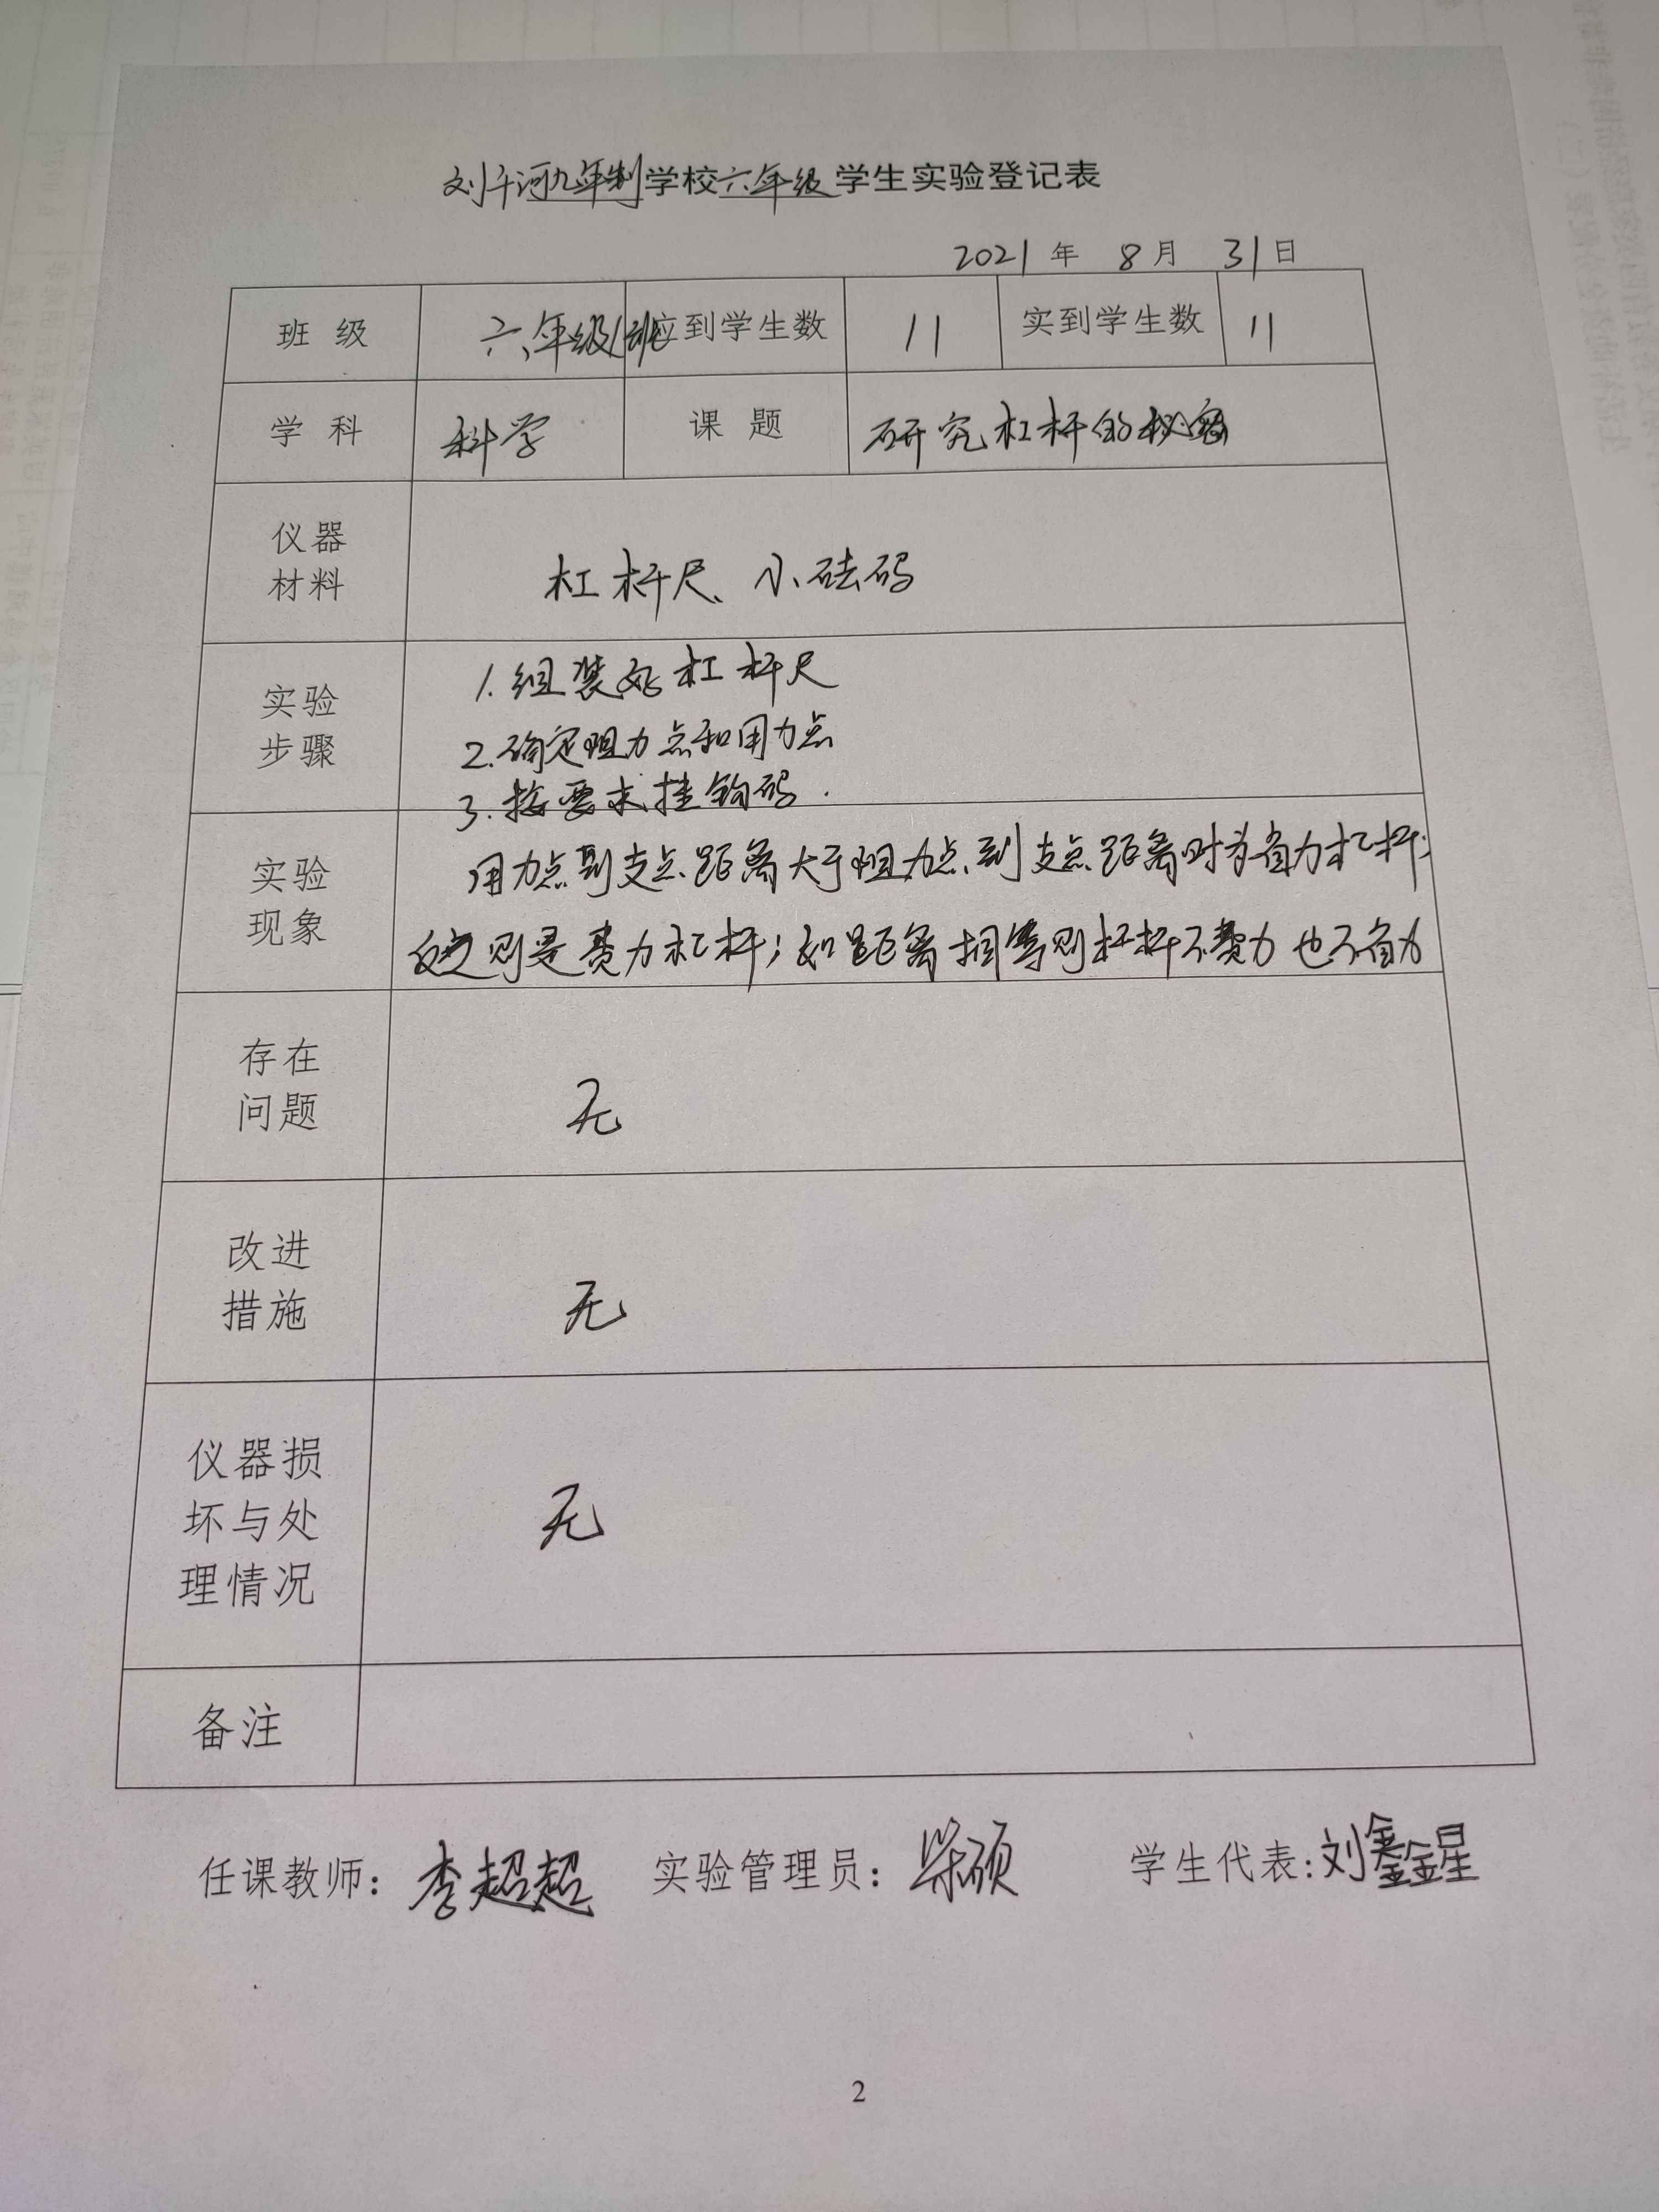 刘千河九年制学校六年级学生实验登记表
2021年 8月 31日
班级 六年级1班 应到学生数 11 实到学生数 11
学科 科学 课题 研究杠杆的秘密
仪器
材料
杠杆尺、小砝码
实验
步骤
1.组装好杠杆尺
2.确定阻力点和用力点
3.按要求挂钩码.
实验
现象
用力点到支点距离大于阻力点到支点距离时为省力杠杆;
反之则是费力杠杆;如距离相等则杠杆不费力也不省力
存在
问题
无
改进
措施
无
仪器损
坏与处
理情况
无
备注
任课教师: 李超超 实验管理员: 柴硕 学生代表: 刘鑫星
2